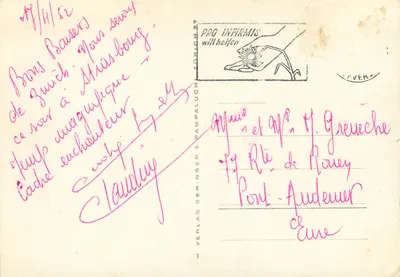 17/4/62
Bons Baisers
de Zürich. Nous serons
ce soir à Strasbourg.
Temps magnifique -
Cadre enchanteur
Claudine
PRO INFIRMIS
will helfen
VERLAG BERINGER & PAMPALUCHI
Mme et Mr M. Grenèche
77 Rte de Rouen
Pont-Audemer
de
Eure